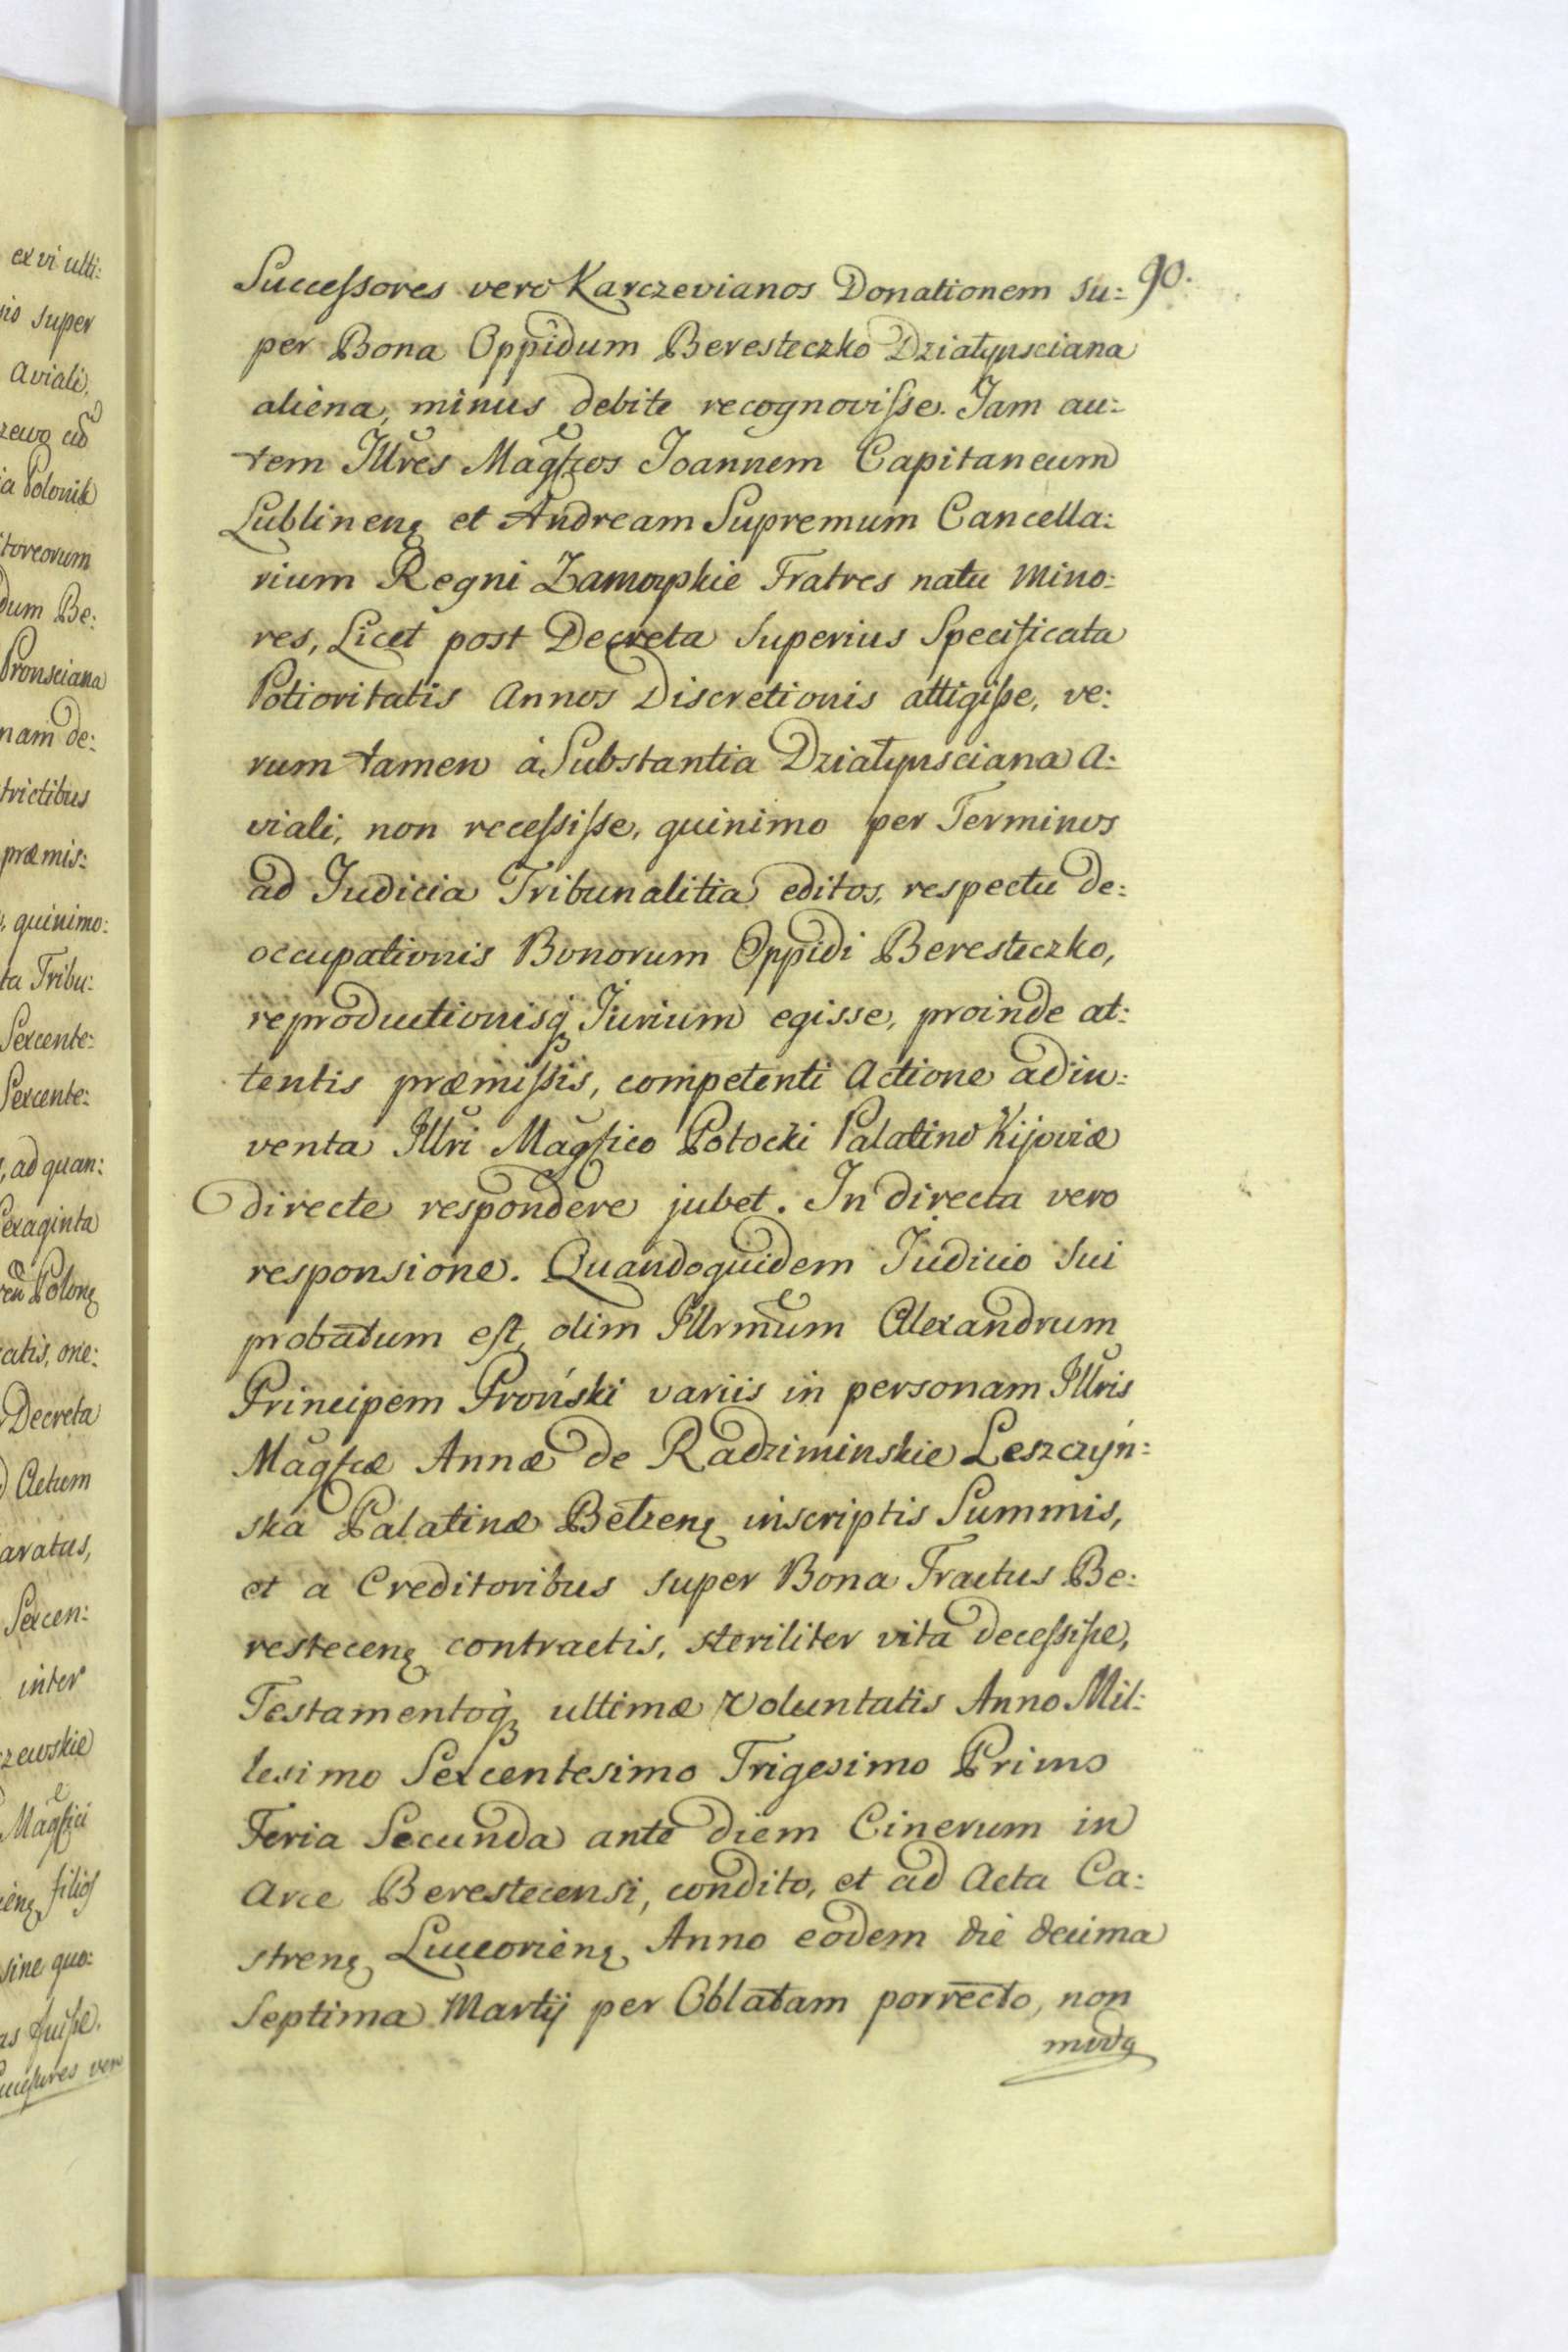 ex vi ulti:
sio super
aviali,
zewo ad
ia Polonik
itoreorum
dum Be:
Pronsciana
nam de:
trictibus
præmis:
, quinimo:
ta Tribu:
Sexcente:
Sexcente:
, ad quan:
Sexaginta
Polonę
catis, one:
Decreta
Actum
aratus,
Sexcen:
inter
zewskie
Magfici
filios
sine quo:
as fuiſse.
uccessores vero
90.
Succeſsores vero Karczevianos Donationem su:
per Bona Oppidum Beresteczko Działynsciana
aliena, minus debite recognoviſse. Jam au:
tem Jllres Magfcos Joannem Capitaneum
Lublinenę et Andream Supremum Cancella:
rium Regni Zamoyskie Fratres natu mino:
res, Licet post Decreta Superius Specificata
Potioritatis Annos Discretionis attigiſse, ve:
rum tamen á Substantia Działynsciana A:
viali, non receſsiſse, quinimo per Terminos
ad Judicia Tribunalitia editos, respectu de:
occupationis Bonorum Oppidi Beresteczko,
reproductionisq Jurium egisse, proinde at:
tentis præmiſsis, competenti Actione adin:
venta Jllri Magfico Potocki Palatino Kijoviæ
directe respondere jubet. In directa vero
responsione. Quandoquidem Judicio sui
probatum est, olim Jllrmum Alexandrum
Principem Proński variis in personam Jllris
Magfcæ Annæ de Radziminskie Leszczyń:
ska Palatinæ Bełzenę inscriptis Summis,
et a Creditoribus super Bona Tractus Be:
restecenę contractis, steriliter vita deceſsiſse,
Testamentoq ultimæ voluntatis Anno Mil:
lesimo Sexcentesimo Trigesimo Primo
Feria Secunda ante diem Cinerum in
Arce Berestecensi, condito, et ad Acta Ca:
strenę Luceorienę Anno eodem die decima
Septima Martij per Oblatam porrecto, non
modo